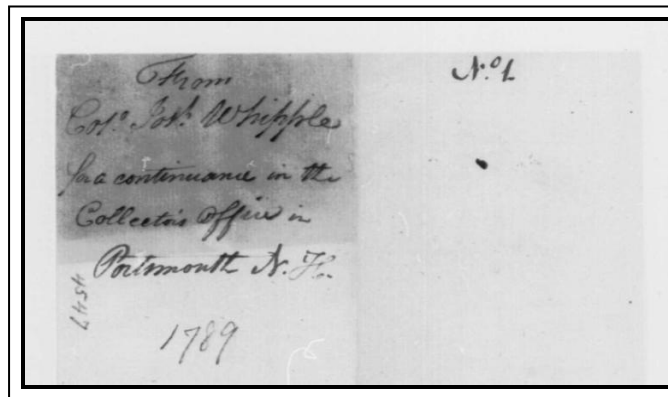 From
Colo. Jos. Whipple
for a continuance in the
Collectors Office in
Portsmouth N. H.
1789
4547
No. 1